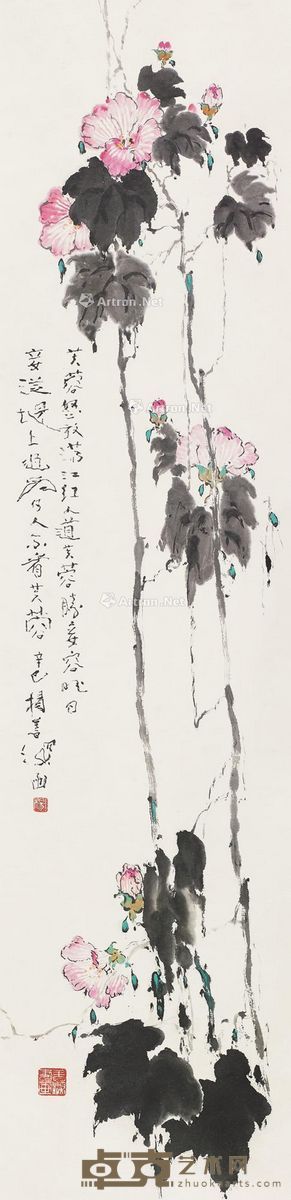 芙蓉花放满江红人道芙蓉胜妾容昨日
妾从堤上过如何人不看芙蓉 辛巳
Artron.Net
Artron.Net
Artron.Net
Artron.Net
卓克艺术网
www.zhuokearts.com